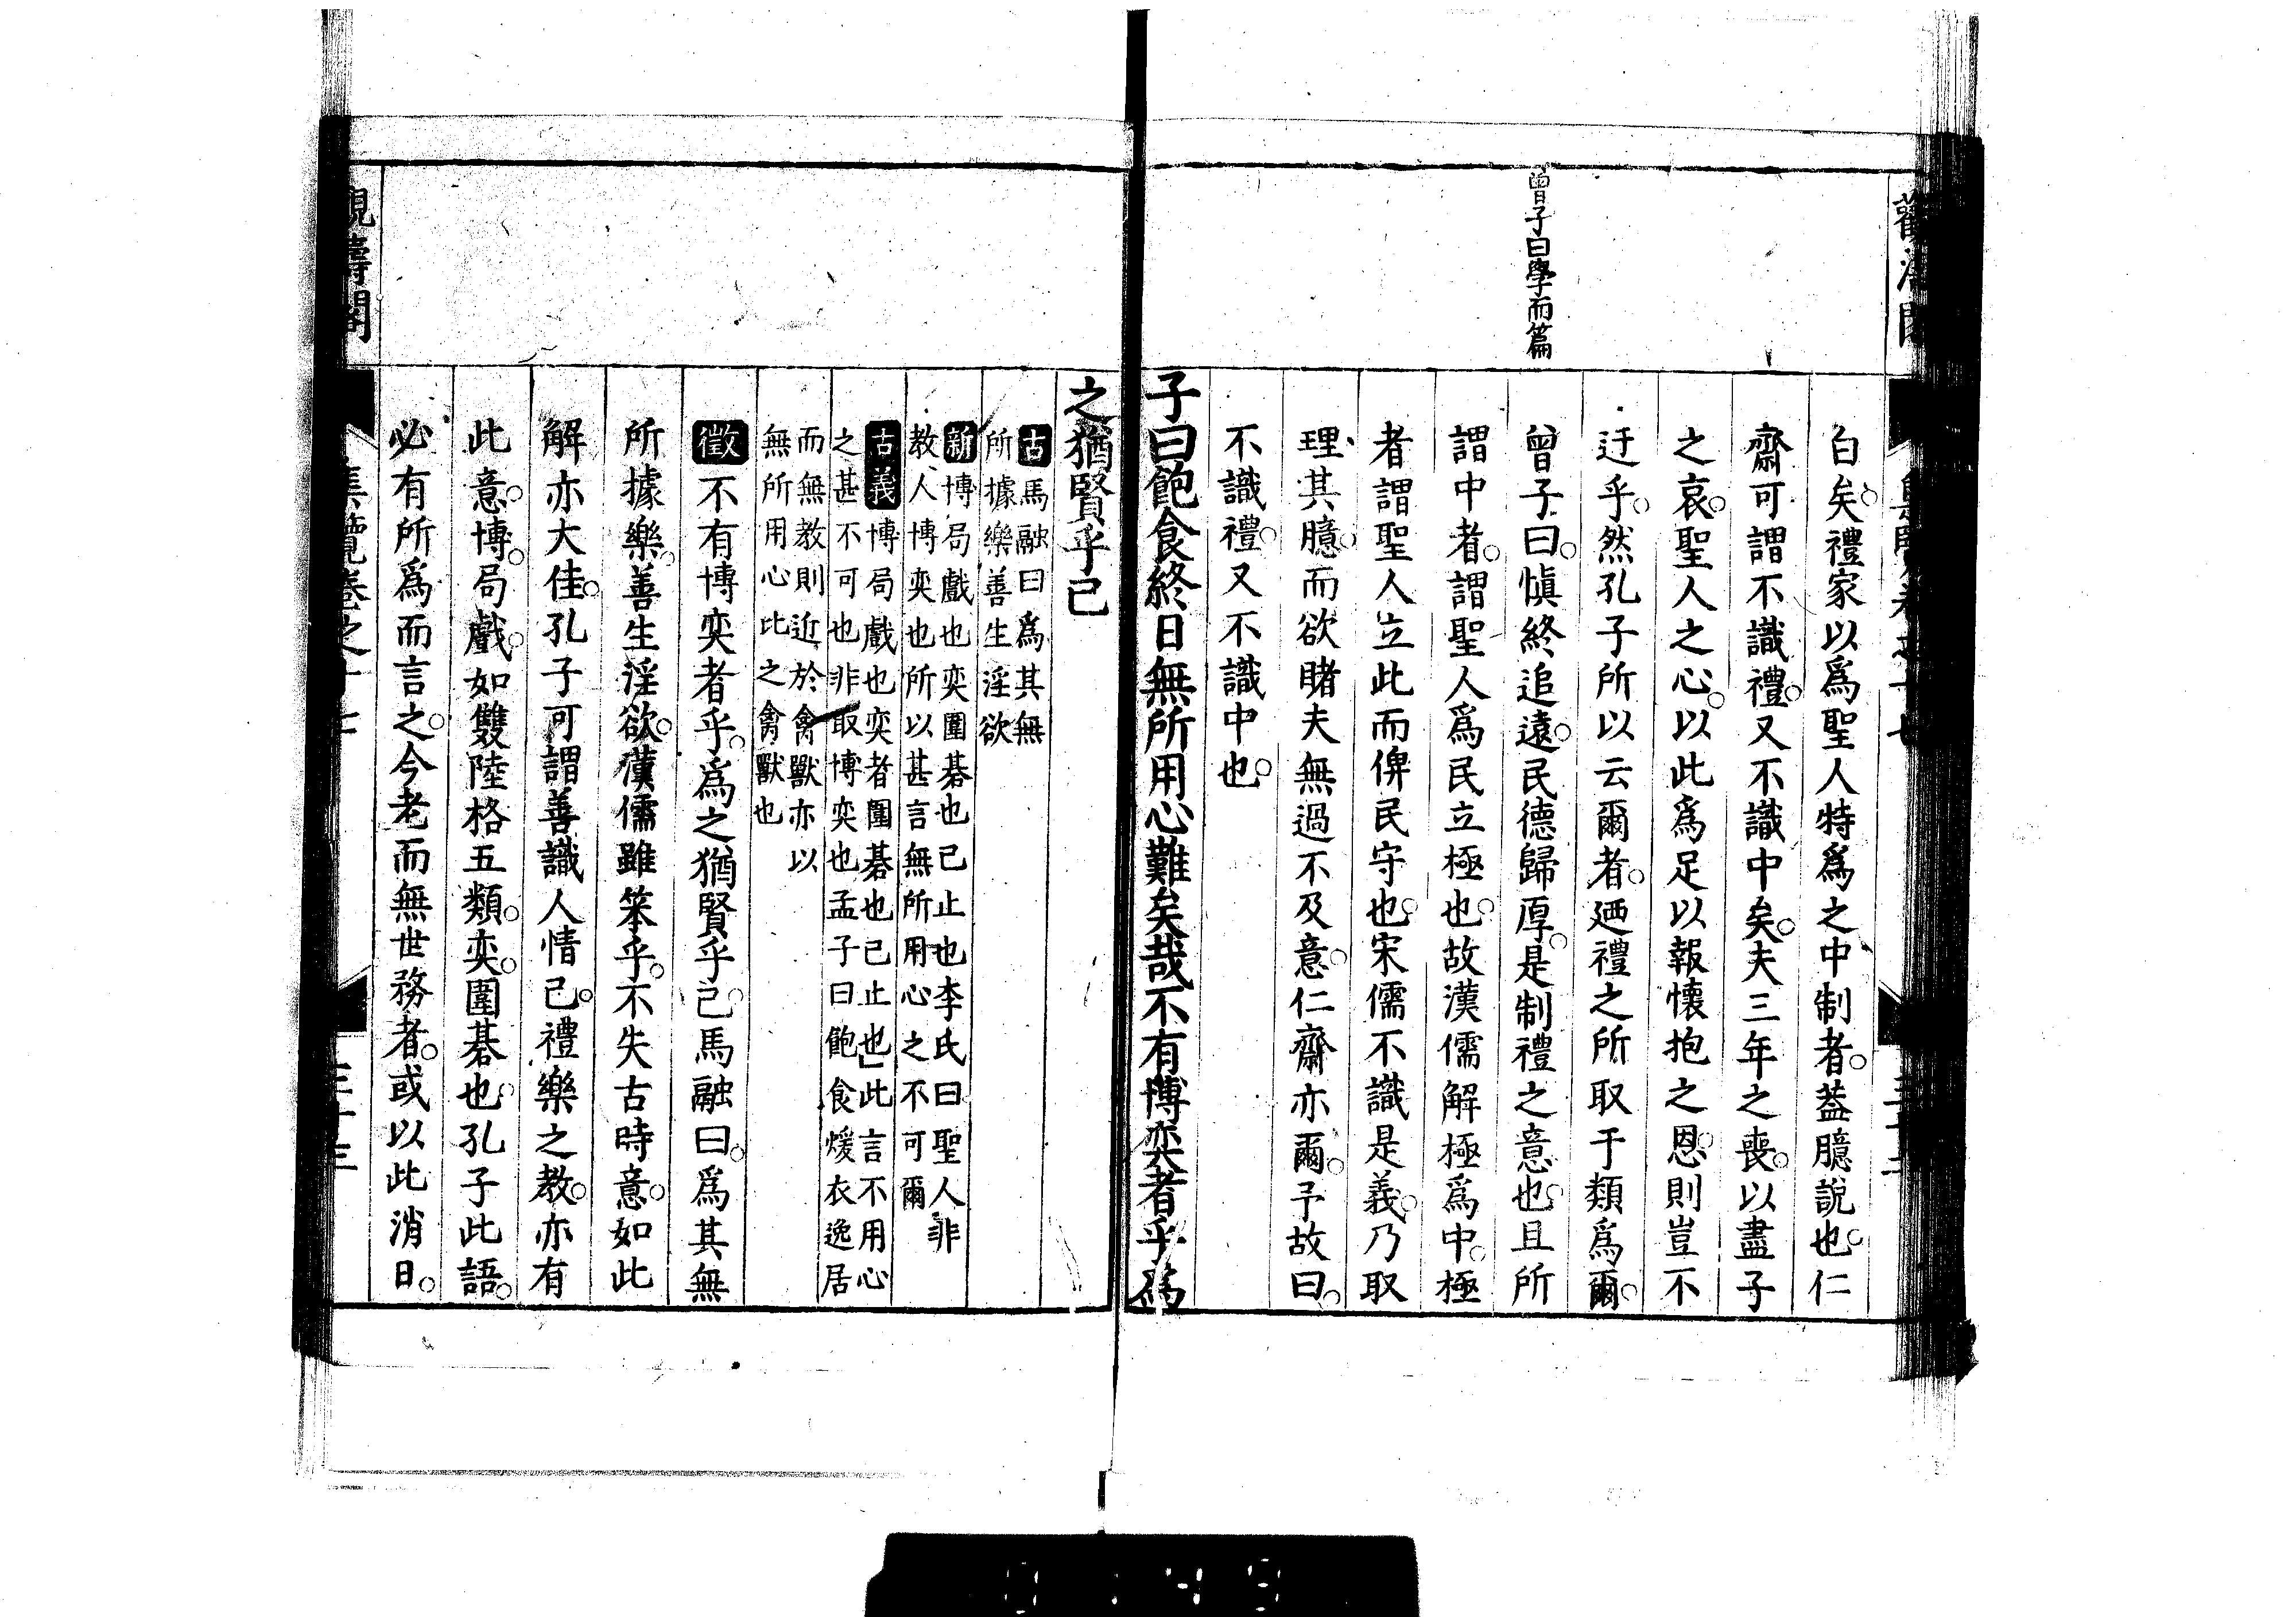 曾子曰學而篇
白矣。禮家以爲聖人特爲之中制者。葢臆說也。仁
齋可謂不識禮。又不識中矣。夫三年之喪。以盡子
之哀。聖人之心。以此爲足以報懷抱之恩。則豈不
迂乎。然孔子所以云爾者。廼禮之所取于類爲爾。
曾子曰。愼終追遠。民德歸厚。是制禮之意也。且所
謂中者。謂聖人爲民立極也。故漢儒解極爲中。極
者謂聖人立此而俾民守也。宋儒不識是義。乃取
理其臆。而欲睹夫無過不及意。仁齋亦爾。予故曰。
不識禮。又不識中也。
子曰飽食終日無所用心難矣哉不有博奕者乎爲
之猶賢乎已
古馬融曰爲其無
所據樂善生淫欲
新博局戲也奕圍碁也已止也李氏曰聖人非
教人博奕也所以甚言無所用心之不可爾
古義博局戲也奕者圍碁也已止也此言不用心
之甚不可也非取博奕也孟子曰飽食煖衣逸居
而無教則近於禽獸亦以
無所用心比之禽獸也
徵不有博奕者乎。爲之猶賢乎已。馬融曰。爲其無
所據樂。善生淫欲。漢儒雖笨乎。不失古時意。如此
解亦大佳。孔子可謂善識人情已。禮樂之教。亦有
此意。博。局戲。如雙陸格五類。奕。圍碁也。孔子此語。
必有所爲而言之。今老而無世務者。或以此消日。
觀濤閣
集覽卷之十七
三十三